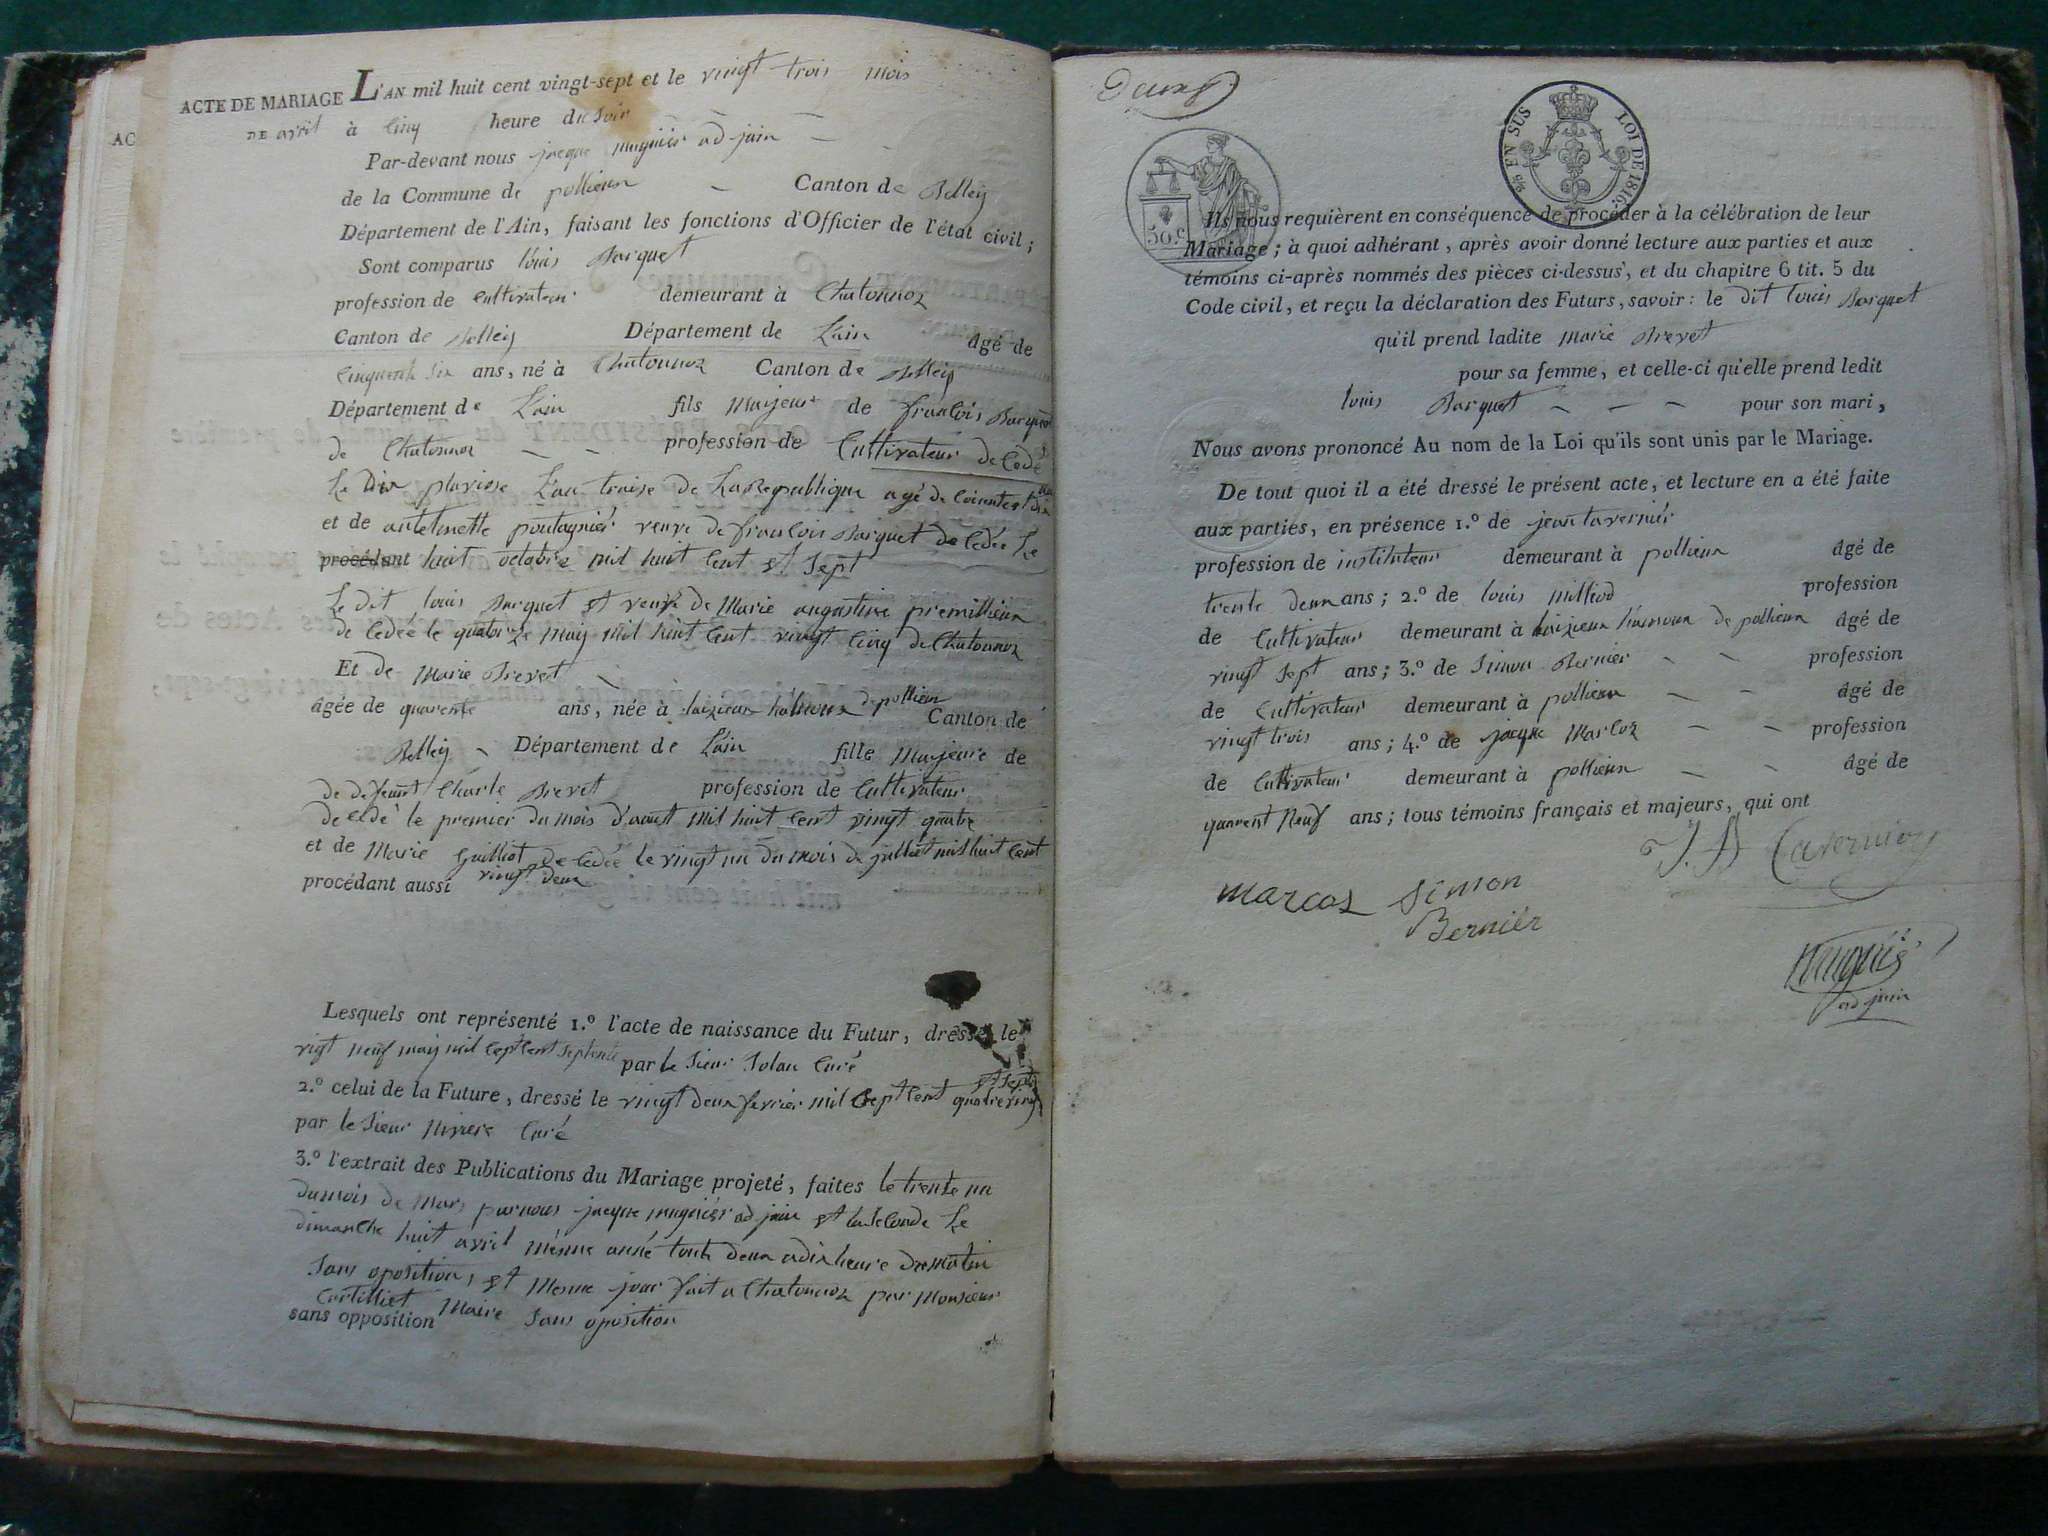 ACTE DE MARIAGE L'AN mil huit cent vingt-sept et le vingt trois mois
AC
DE avril à cinq heure du soir
Par-devant nous jacque mugnier adjoin
de la Commune de pollieux Canton de Belley
Département de l'Ain, faisant les fonctions d'Officier de l'état civil;
Sont comparus louis Barquet
profession de Cultivateur demeurant à Chatonnoz
Canton de Belley Département de L'ain âgé de
Cinquente six ans, né à Chatonnoz Canton de Belley
Département de L'ain fils Majeur de francois Barquet
de Chatonnoz profession de Cultivateur decedé
Le Dix pluviose L'an traise de La Republique agé de
et de veuve de francois Barquet decedée Le
procédant huit octobre mil huit Cent et Sept
Le dit louis Barquet et veuve de Marie augustine premillieux
decedée le quatorze may mil huit Cent vingt Cinq de Chatonnoz
Et de Marie Brevet
âgée de quarente ans, née à de pollieux Canton de
Belley Département de L'ain fille Majeure de
de defeunt Charle Brevet profession de Cultivateur
decedé le premier du mois d'aout mil huit Cent vingt quatre
et de Marie Guilliot decedée le vingt un du mois de julliet mil huit Cent
procédant aussi vingt deux
Lesquels ont représenté 1.º l'acte de naissance du Futur, dressé le
vigt neuf may mil sept Cent septente par le Sieur Curé
et sept
2.º celui de la Future, dressé le vingt deux fevrier mil sept Cent quatre vingt
par le Sieur Curé
3.º l'extrait des Publications du Mariage projeté, faites le trente un
du mois de Mars par nous jacque mugnier adjoin et la Seconde Le
dimanche huit avril mémme année toute deux a dix heure du Matin
Sans oposition, et Mémme jour fait a Chatonnoz par Monsieur
Maire Sans oposition
sans opposition
Deux
EN SUS
LOI DE 1816.
50.c
Ils nous requièrent en conséquence de procéder à la célébration de leur
Mariage; à quoi adhérant, après avoir donné lecture aux parties et aux
témoins ci-après nommés des pièces ci-dessus, et du chapitre 6 tit. 5 du
Code civil, et reçu la déclaration des Futurs, savoir: le dit louis Barquet
qu'il prend ladite Marie Brevet
pour sa femme, et celle-ci qu'elle prend ledit
louis Barquet pour son mari,
Nous avons prononcé Au nom de la Loi qu'ils sont unis par le Mariage.
De tout quoi il a été dressé le présent acte, et lecture en a été faite
aux parties, en présence 1.º de jean tavernier
profession de instituteur demeurant à pollieux âgé de
trente deux ans; 2.º de louis milliod profession
de Cultivateur demeurant à de pollieux âgé de
vingt Sept ans; 3.º de Simon Bernier profession
de Cultivateur demeurant à pollieux âgé de
vingt trois ans; 4.º de jacque Marcoz profession
de Cultivateur demeurant à pollieux âgé de
quarent Neuf ans; tous témoins français et majeurs, qui ont
Tavernier
marcoz Simon
Bernier
mugnier
adjoin